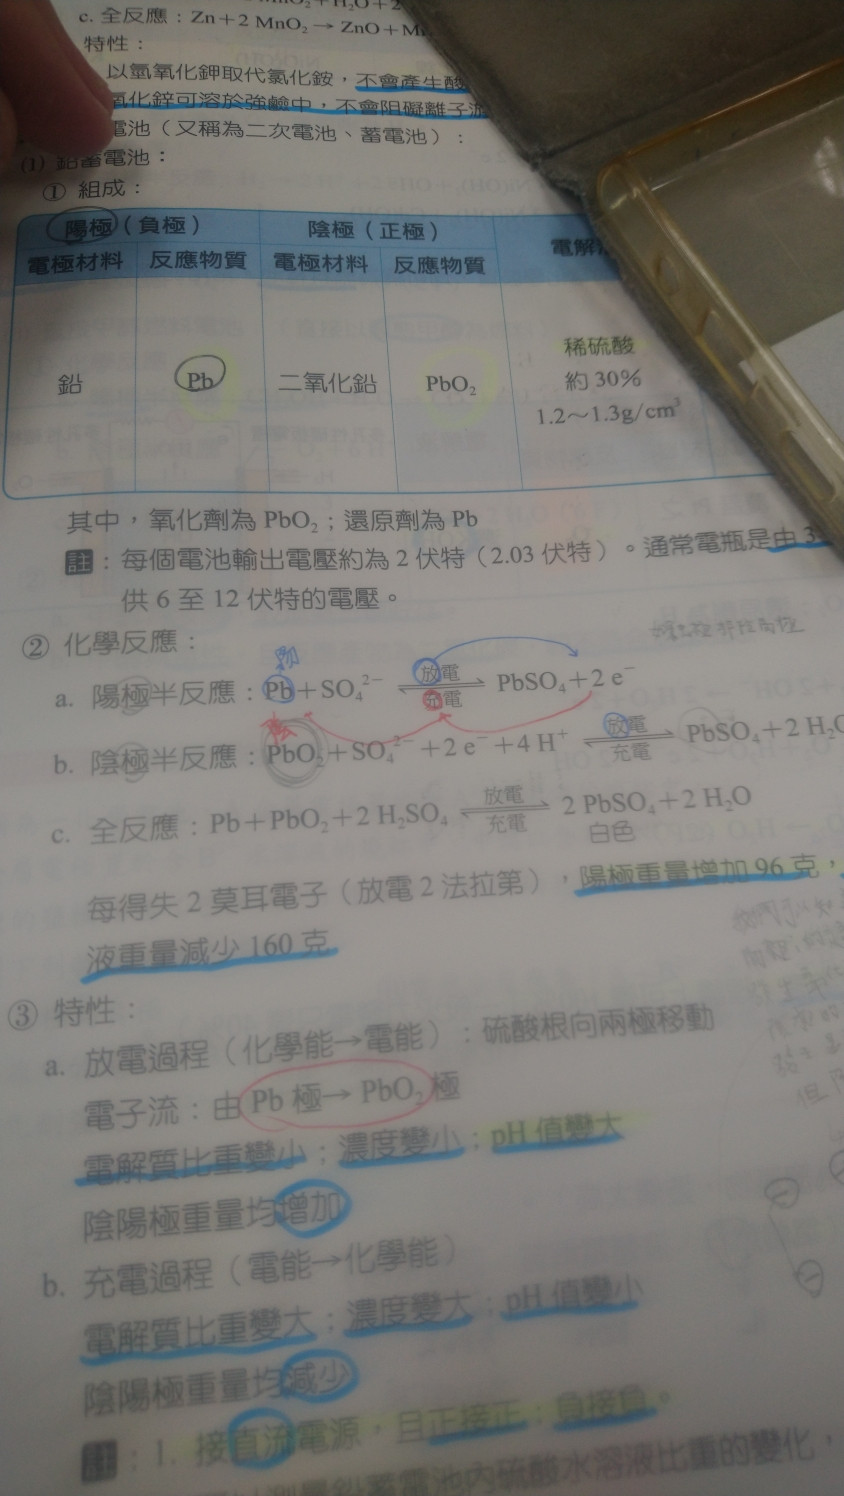 c. 全反應：Zn＋2 MnO₂→ ZnO＋M
特性：
以氫氧化鉀取代氯化銨，不會產生酸
氧化鋅可溶於強鹼中，不會阻礙離子
電池（又稱為二次電池、蓄電池）：
(1) 鉛蓄電池：
① 組成：
陽極（負極） 陰極（正極） 電解
電極材料 反應物質 電極材料 反應物質
鉛 Pb 二氧化鉛 PbO₂ 稀硫酸
約 30%
1.2～1.3g/cm³
其中，氧化劑為 PbO₂；還原劑為 Pb
註：每個電池輸出電壓約為 2 伏特（2.03 伏特）。通常電瓶是由 3
供 6 至 12 伏特的電壓。
② 化學反應：
a. 陽極半反應：Pb＋SO₄²⁻ 放電 充電 PbSO₄＋2 e⁻
b. 陰極半反應：PbO₂＋SO₄²⁻＋2 e⁻＋4 H⁺ 放電 充電 PbSO₄＋2 H₂O
c. 全反應：Pb＋PbO₂＋2 H₂SO₄ 放電 充電 2 PbSO₄＋2 H₂O
白色
每得失 2 莫耳電子（放電 2 法拉第），陽極重量增加 96 克，
液重量減少 160 克
③ 特性：
a. 放電過程（化學能→電能）：硫酸根向兩極移動
電子流：由 Pb 極→ PbO₂ 極
電解質比重變小；濃度變小；pH 值變大
陰陽極重量均增加
b. 充電過程（電能→化學能）
電解質比重變大；濃度變大；pH 值變小
陰陽極重量均減少
註：1. 接直流電源，且正接正；負接負。
測量鉛蓄電池內硫酸水溶液比重的變化，